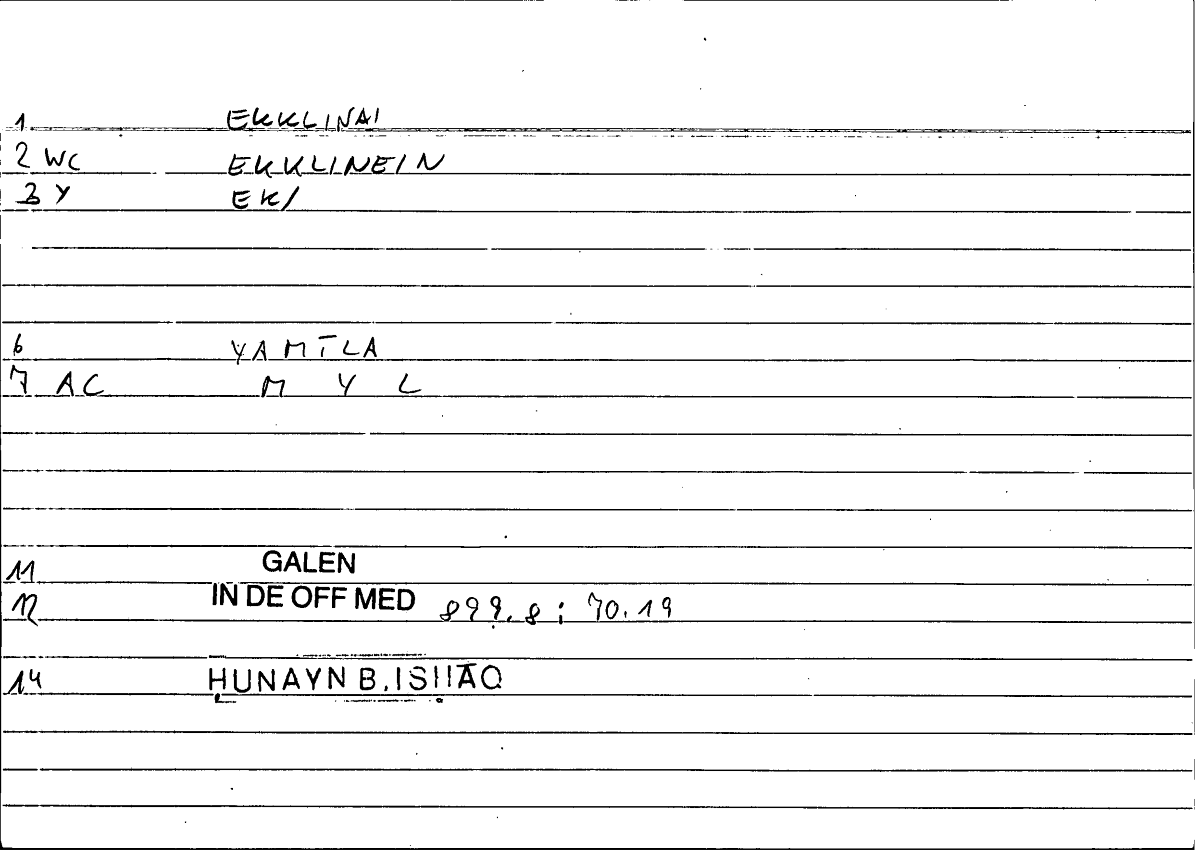 1 EKKLINAI
2 WC EKKLINEIN
3 Y EK/
6 YAMĪLA
7 AC M Y L
11 GALEN
12 IN DE OFF MED 899.8 ; 70.19
14 HUNAYN B. ISHĀQ